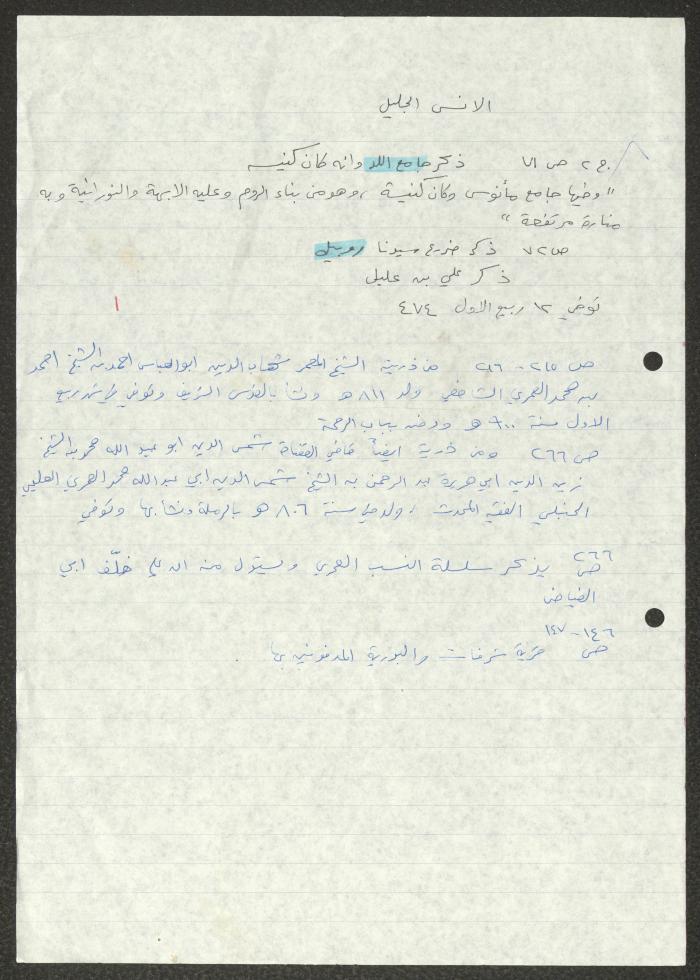 الانس الجليل
ج ٢ ص ٧١ ذكر جامع اللد وانه كان كنيسه
" وظهرها جامع مأنوس وكان كنيسة ، وهو من بناء الروم وعليه الابهة والنورانية وبه
منارة مرتفعة "
ص ٧٢ ذكر ضريح سيدنا روبيل
ذكر علي بن عليل
توفي ١٢ ربيع الاول ٤٧٤
ص ٢٦٥ - ٢٦٦ من ذريته الشيخ المعمر شهاب الدين ابو العباس احمد بن الشيخ احمد
بن محمد العمري الشافعي ولد ٨١١ هـ ونشأ بالقدس الشريف وتوفي في شهر ربيع
الاول سنة ٩٠٠ هـ ودفن بباب الرحمة
ص ٢٦٦ ومن ذريته ايضاً قاضي القضاة شمس الدين ابو عبد الله محمد بن الشيخ
زين الدين ابي هريرة عبد الرحمن بن الشيخ شمس الدين ابي عبد الله محمد العمري العليمي
الحنبلي الفقيه المحدث ، ولد في سنة ٨٠٦ هـ بالرملة ونشأ بها وتوفي
ص ٢٦٦ يذكر سلسلة النسب العمري ويقول منه ان علي خلّف ابي
الفياض
ص ١٤٦ - ١٤٧ قرية شرفات والبدرية المدفونين بها